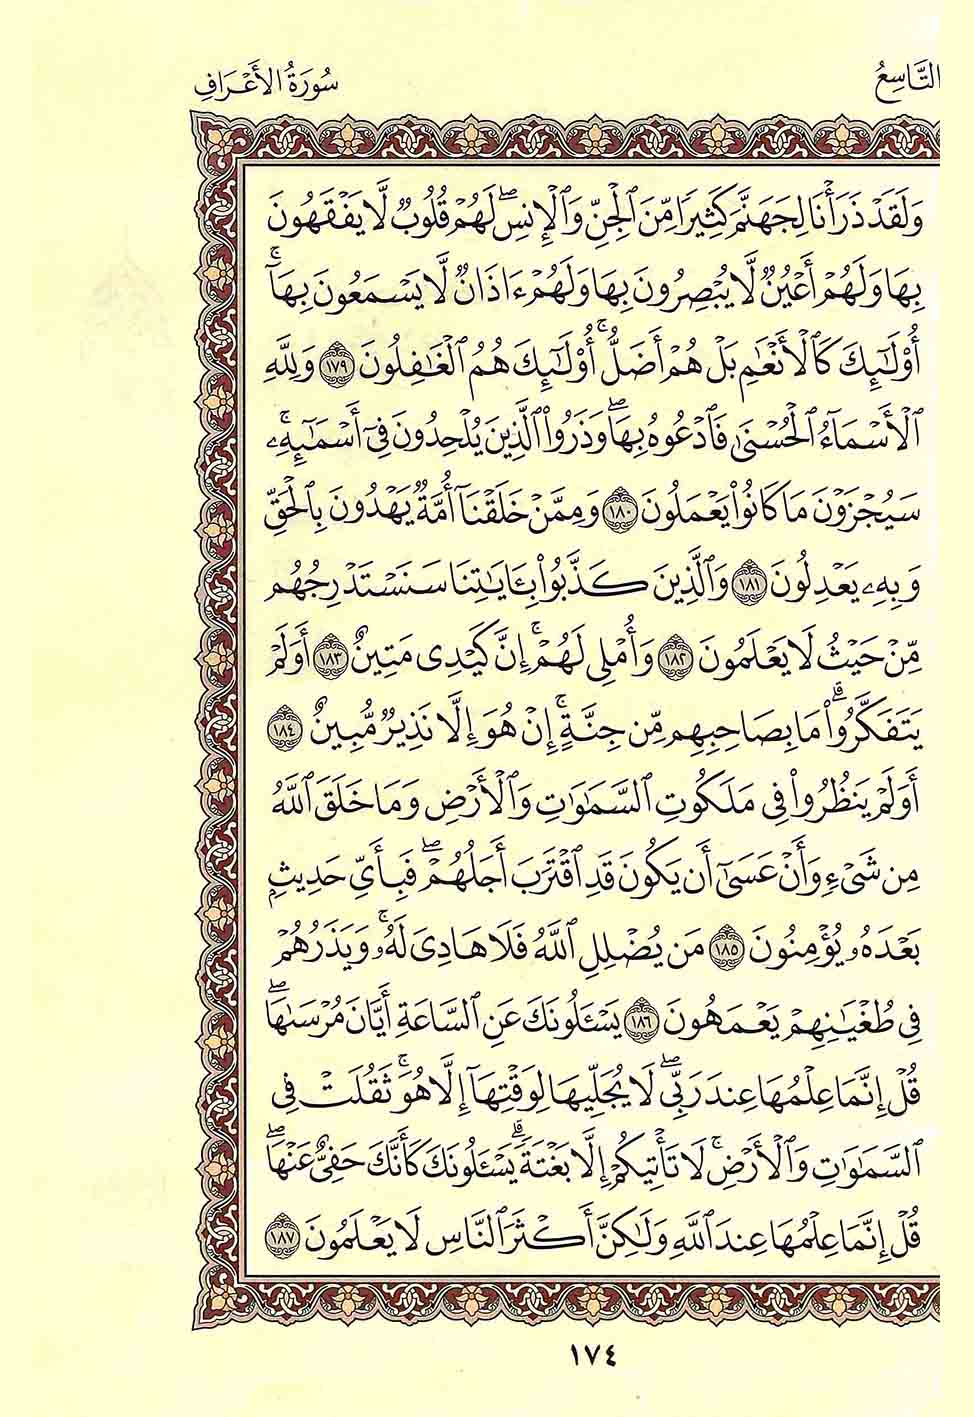 التَّاسِعُ
سُورَةُ الأَعْرَافِ
وَلَقَدْ ذَرَأْنَا لِجَهَنَّمَ كَثِيرًا مِّنَ ٱلْجِنِّ وَٱلْإِنسِ ۖ لَهُمْ قُلُوبٌ لَّا يَفْقَهُونَ
بِهَا وَلَهُمْ أَعْيُنٌ لَّا يُبْصِرُونَ بِهَا وَلَهُمْ ءَاذَانٌ لَّا يَسْمَعُونَ بِهَآ ۚ
أُو۟لَـٰٓئِكَ كَٱلْأَنْعَـٰمِ بَلْ هُمْ أَضَلُّ ۚ أُو۟لَـٰٓئِكَ هُمُ ٱلْغَـٰفِلُونَ ١٧٩ وَلِلَّهِ
ٱلْأَسْمَآءُ ٱلْحُسْنَىٰ فَٱدْعُوهُ بِهَا ۖ وَذَرُوا۟ ٱلَّذِينَ يُلْحِدُونَ فِىٓ أَسْمَـٰٓئِهِۦ ۚ
سَيُجْزَوْنَ مَا كَانُوا۟ يَعْمَلُونَ ١٨٠ وَمِمَّنْ خَلَقْنَآ أُمَّةٌ يَهْدُونَ بِٱلْحَقِّ
وَبِهِۦ يَعْدِلُونَ ١٨١ وَٱلَّذِينَ كَذَّبُوا۟ بِـَٔايَـٰتِنَا سَنَسْتَدْرِجُهُم
مِّنْ حَيْثُ لَا يَعْلَمُونَ ١٨٢ وَأُمْلِى لَهُمْ ۚ إِنَّ كَيْدِى مَتِينٌ ١٨٣ أَوَلَمْ
يَتَفَكَّرُوا۟ ۗ مَا بِصَاحِبِهِم مِّن جِنَّةٍ ۚ إِنْ هُوَ إِلَّا نَذِيرٌ مُّبِينٌ ١٨٤
أَوَلَمْ يَنظُرُوا۟ فِى مَلَكُوتِ ٱلسَّمَـٰوَٰتِ وَٱلْأَرْضِ وَمَا خَلَقَ ٱللَّهُ
مِن شَىْءٍ وَأَنْ عَسَىٰٓ أَن يَكُونَ قَدِ ٱقْتَرَبَ أَجَلُهُمْ ۖ فَبِأَىِّ حَدِيثٍ
بَعْدَهُۥ يُؤْمِنُونَ ١٨٥ مَن يُضْلِلِ ٱللَّهُ فَلَا هَادِىَ لَهُۥ ۚ وَيَذَرُهُمْ
فِى طُغْيَـٰنِهِمْ يَعْمَهُونَ ١٨٦ يَسْـَٔلُونَكَ عَنِ ٱلسَّاعَةِ أَيَّانَ مُرْسَىٰهَا ۖ
قُلْ إِنَّمَا عِلْمُهَا عِندَ رَبِّى ۖ لَا يُجَلِّيهَا لِوَقْتِهَآ إِلَّا هُوَ ۚ ثَقُلَتْ فِى
ٱلسَّمَـٰوَٰتِ وَٱلْأَرْضِ ۚ لَا تَأْتِيكُمْ إِلَّا بَغْتَةً ۗ يَسْـَٔلُونَكَ كَأَنَّكَ حَفِىٌّ عَنْهَا ۖ
قُلْ إِنَّمَا عِلْمُهَا عِندَ ٱللَّهِ وَلَـٰكِنَّ أَكْثَرَ ٱلنَّاسِ لَا يَعْلَمُونَ ١٨٧
١٧٤